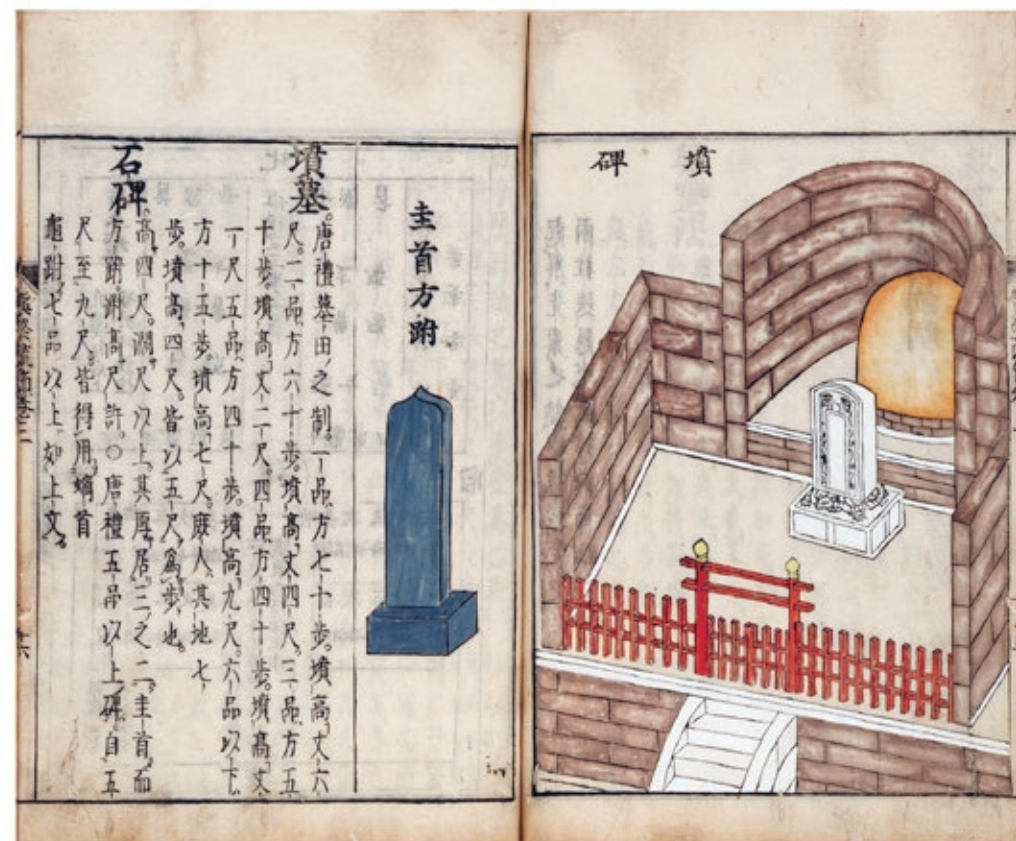 墳
碑
圭首方跗
墳墓
唐禮墓田之制。一品方七十步。墳高丈六
尺。二品方六十步。墳高丈四尺。三品方五
十步。墳高丈二尺。四品方四十步。墳高丈
一尺五品方四十步。墳高九尺。六品以下
方十五步。墳高七尺。庶人其地七
步。墳高四尺。皆以五尺爲步也。
石碑
高四尺。濶尺以上其厚居三之二。圭首而
方跗。跗高尺許。○唐禮五品以上碑。自五
尺至九尺。皆得用螭首
龜跗。七品以上如上文。